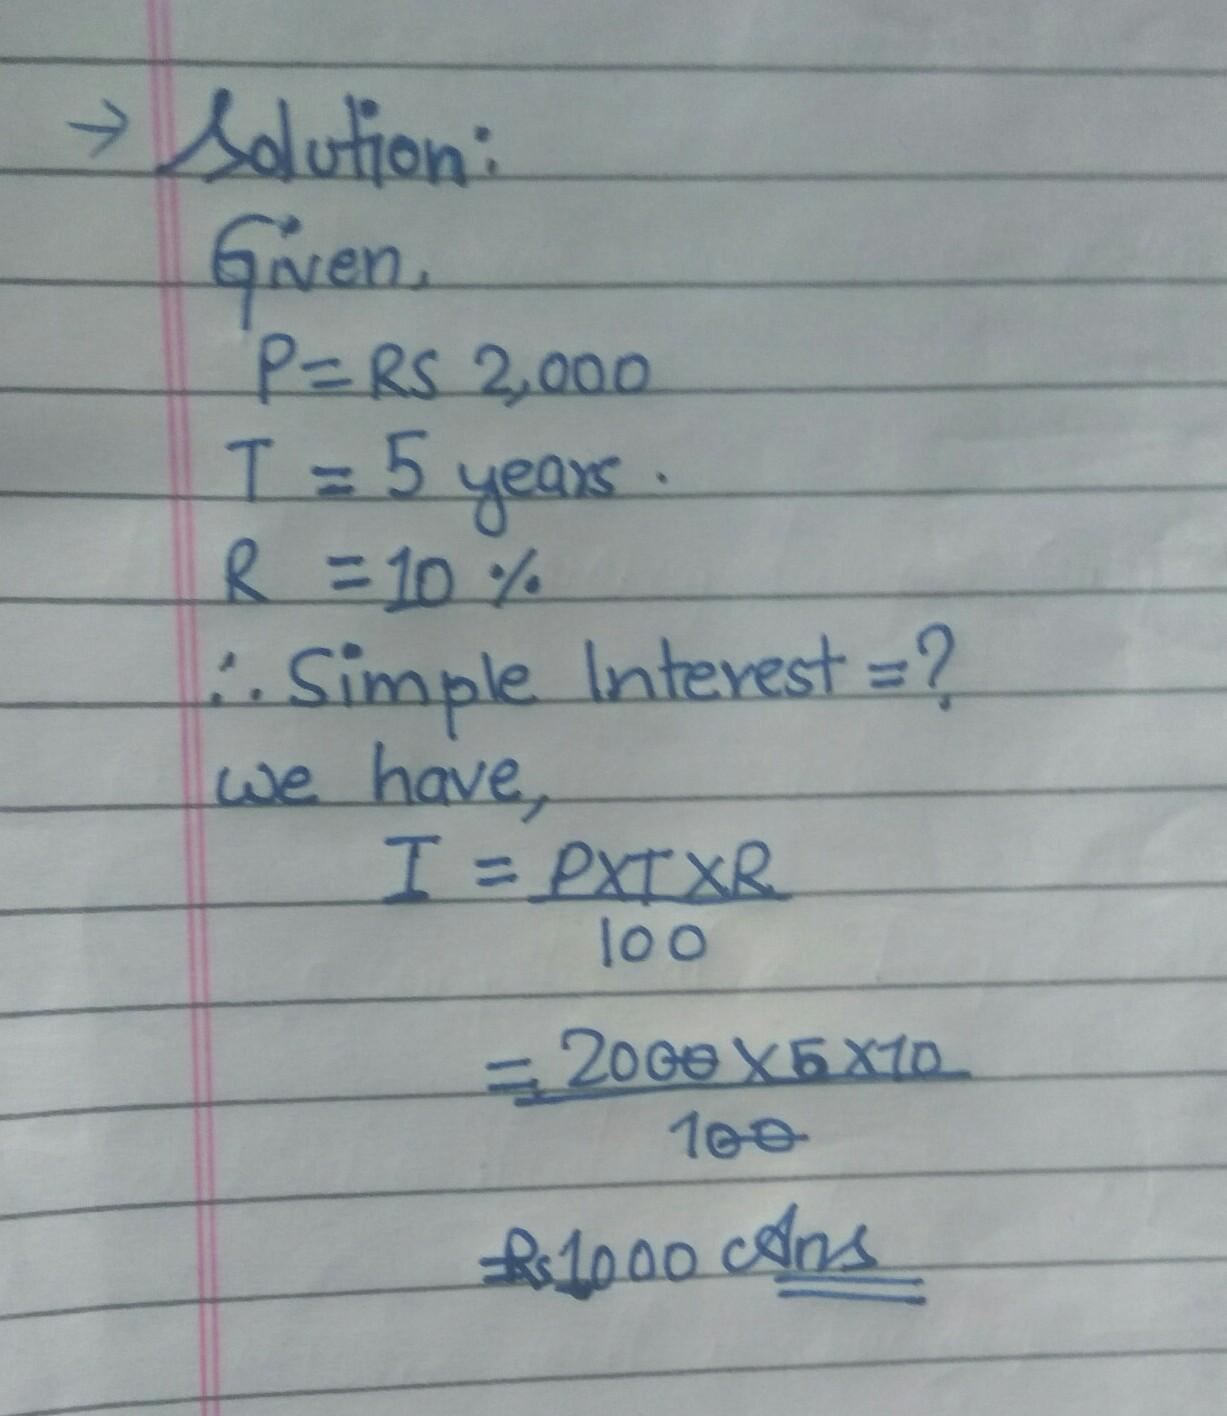 → Solution:
Given,
P = RS 2,000
T = 5 years.
R = 10 %
∴ Simple Interest = ?
we have,
I = P×T×R
100
= 2000 × 5 × 10
100
= Rs 1000 Ans